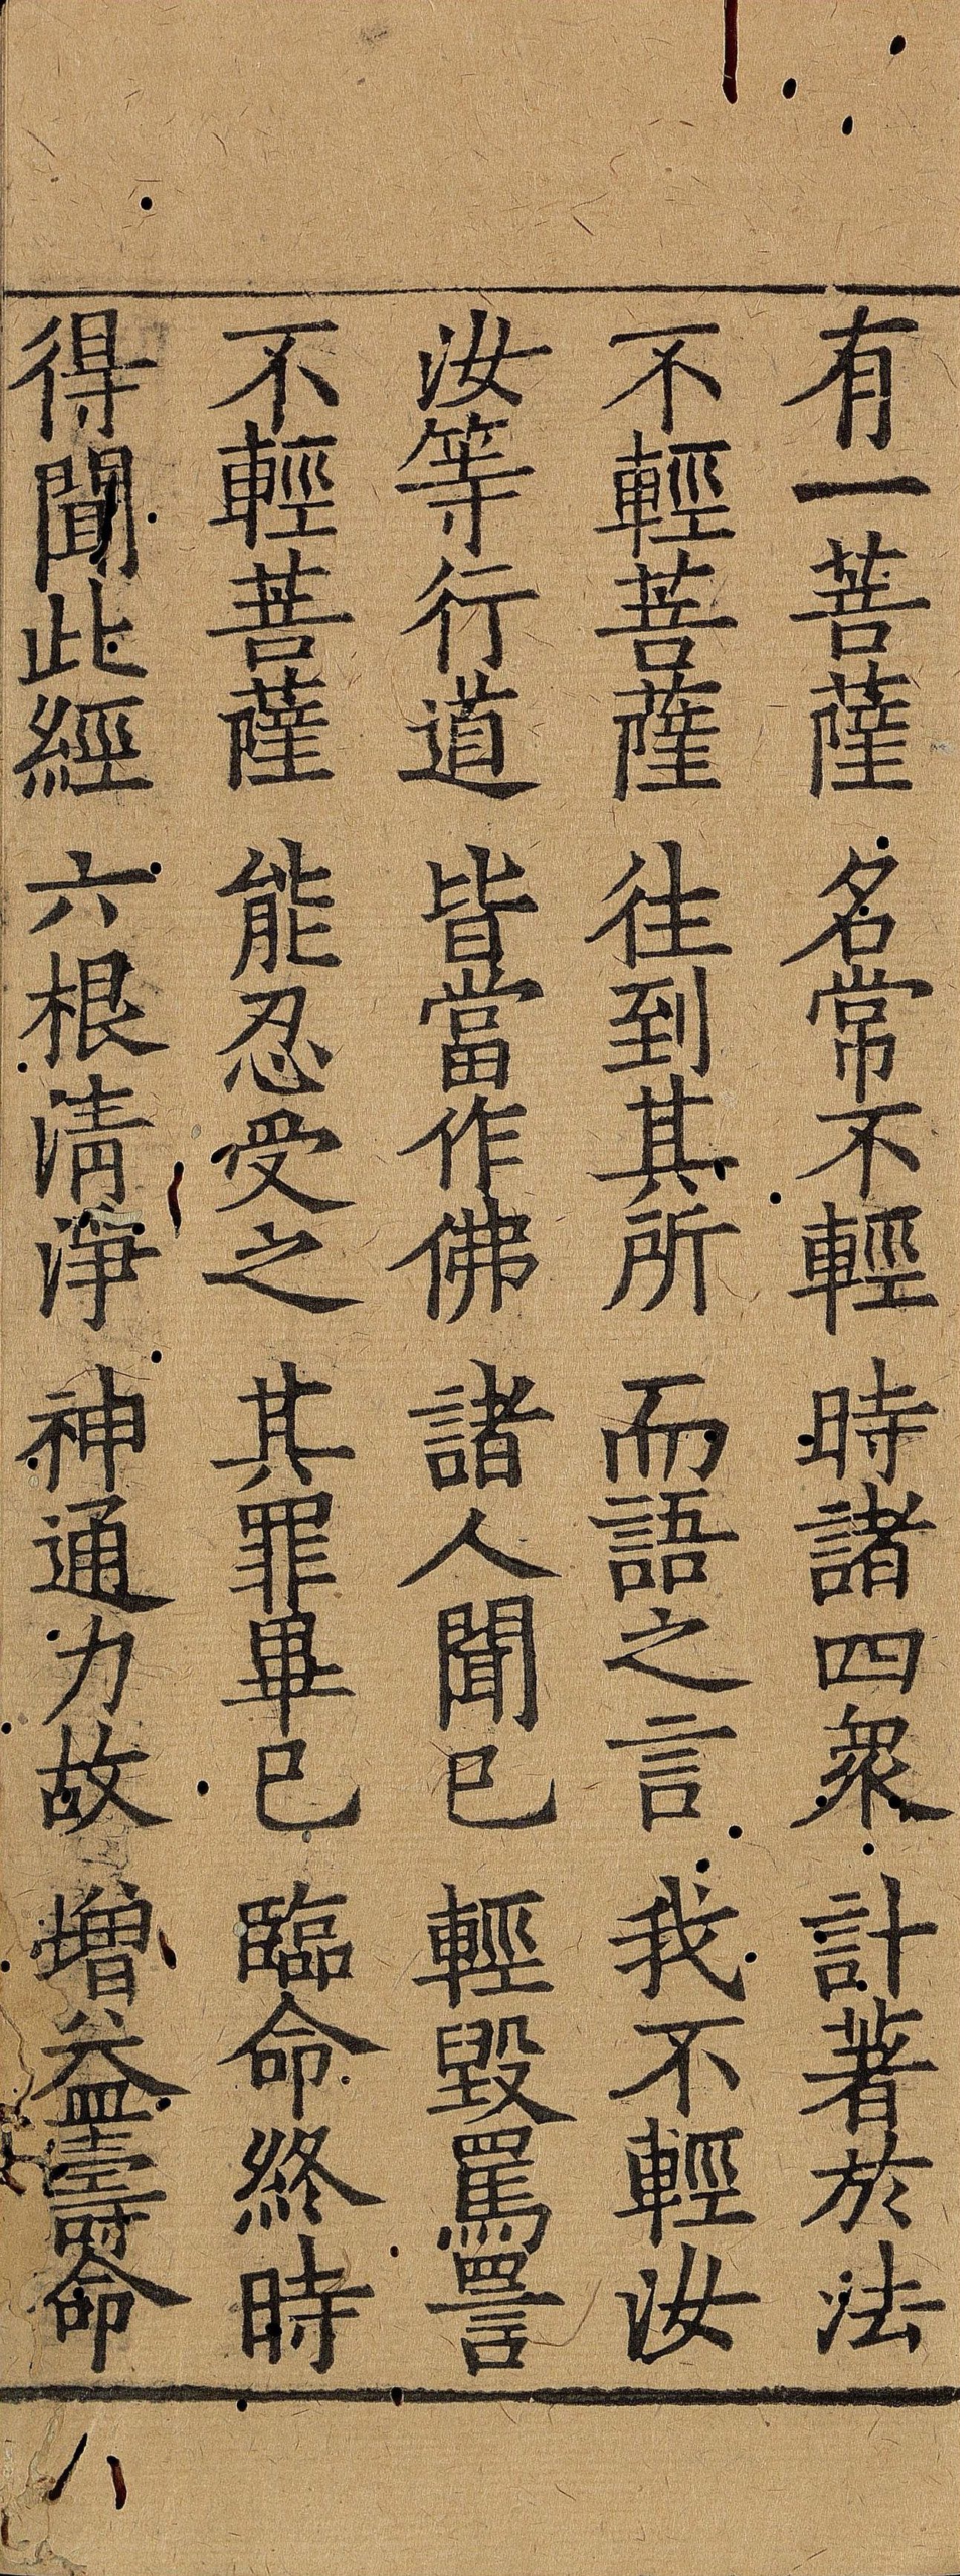 有一菩薩 名常不輕 時諸四衆 計著於法
不輕菩薩 往到其所 而語之言 我不輕汝
汝等行道 皆當作佛 諸人聞已 輕毀罵詈
不輕菩薩 能忍受之 其罪畢已 臨命終時
得聞此經 六根清淨 神通力故 增益壽命